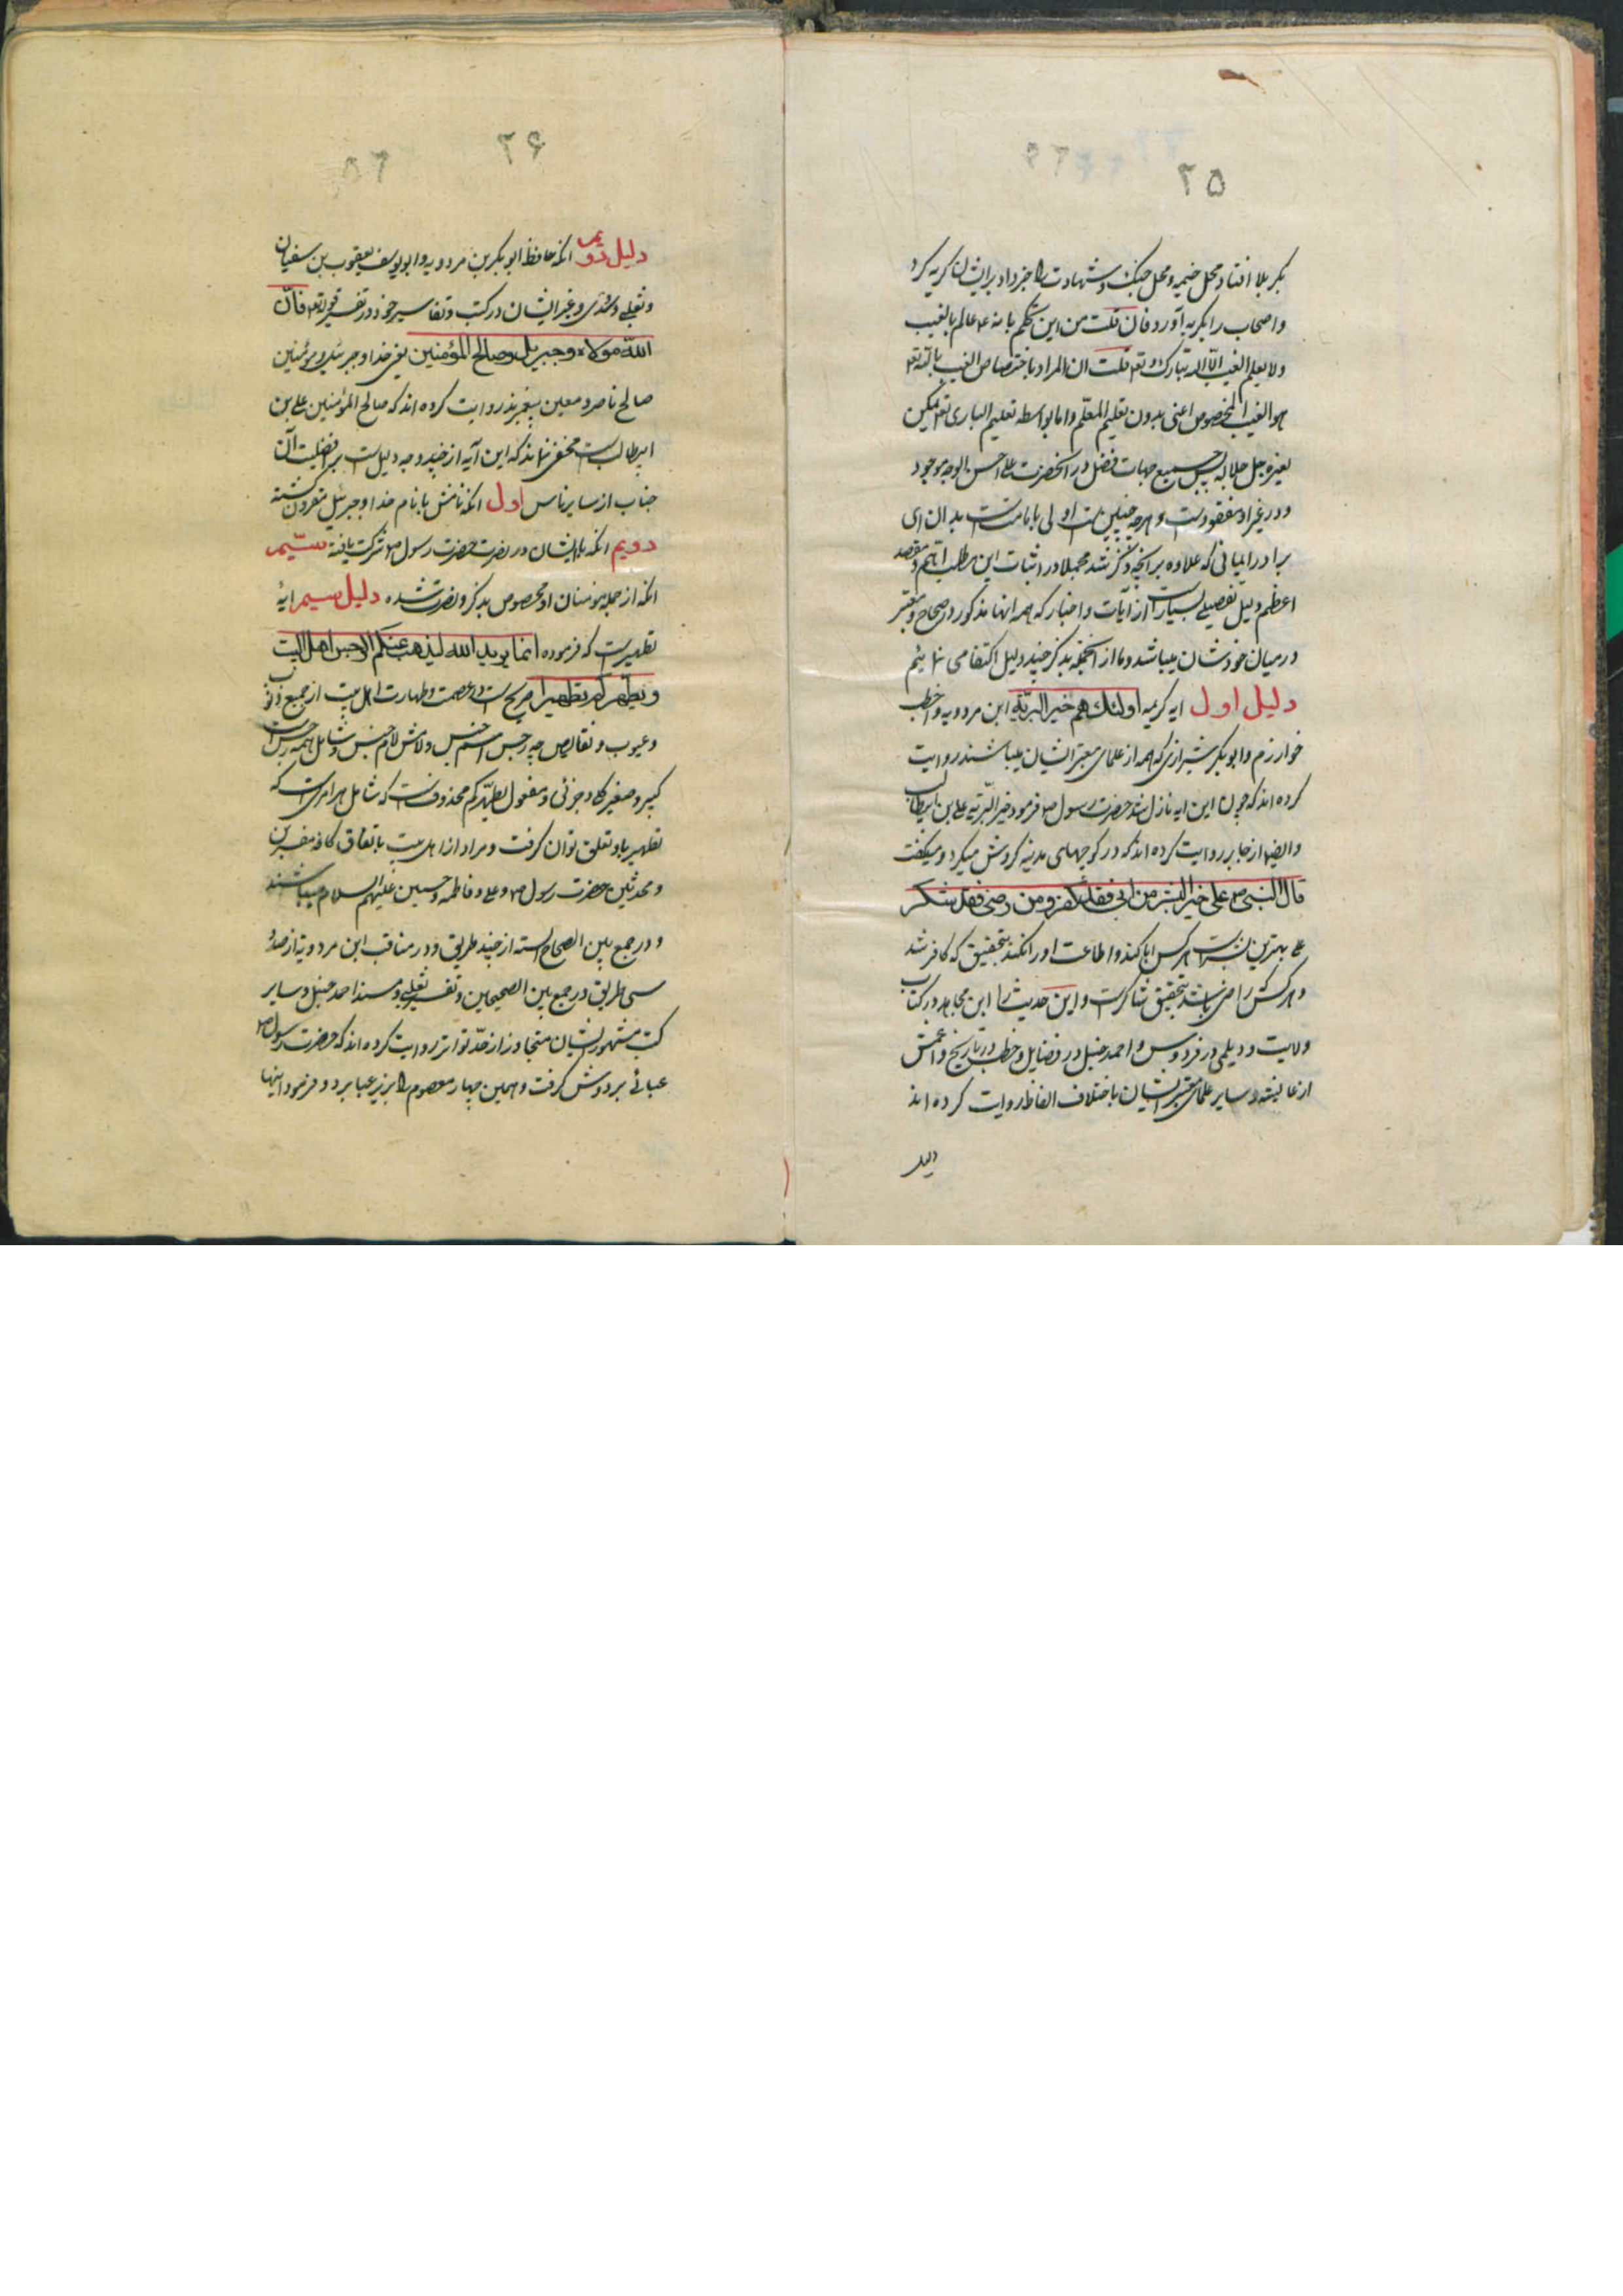 ۲۵
بکربلا افتاد محل خیمه و محل جنک و شهادت را خبر داد برایشان کریه کرد
و اصحاب را بکریه آورد فان قلت من این تحکم بانه ع عالم بالغیب
ولا یعلم الغیب الّا الله تبارک و تع قلت ان المراد باختصاص الغیب بالله تع
هو الغیب المخصوص اعنی بدون تعلیم المعلّم و اما بواسطه تعلیم الباری تع یمکن
لغیره جل جلاله پس جمیع جهات فضل در انحضرت علی احسن الوجه موجود
و در غیر او مفقودست و هرچه چنین است اولی بامامت است بدان ای
برادر ایمانی که علاوه بر انچه ذکر شد مجملا در اثبات این مطلب اهم و مقصد
اعظم دلیل تفصیلی بسیارست از آیات و اخبار که همه انها مذکور در صحاح و معتبر
در میان خودشان میباشد و ما از انجمله بذکر چند دلیل اکتفا می نمائیم
دلیل اول ایه کریمه اولئک هم خیر البریّه ابن مردویه و اخطب
خوارزم و ابو بکر شیرازی که همه از علمای معتبر ایشان میباشند روایت
کرده اند که چون این ایه نازل شد حضرت رسول ص فرمود خیر البریّه علی بن ابیطالب
و ایضا از جابر روایت کرده اند که در کوچهای مدینه کردش میکرد و میکفت
قال النبی ص علی خیر البشر من ابی فقد کفر و من رضی فقد شکر
علی بهترین بشرست هر کس ابا کند و اطاعت او را نکند بتحقیق که کافر شد
و هر کس راضی باشد بتحقیق شاکرست و این حدیث را ابن مجاهد در کتاب
ولایت و دیلمی در فردوس و احمد حنبل در فضایل و خطیب در تاریخ و اعمش
از عایشه و سایر علمای معتبر ایشان باختلاف الفاظ روایت کرده اند
دلیل
۲۶
دلیل دویم انکه حافظ ابو بکر بن مردویه و ابو یوسف یعقوب بن سفیان
و ثعلبی و سدّی و غیر ایشان در کتب و تفاسیر خود در تفسیر قوله تع فانّ
اللّه مولاه و جبریل و صالح المؤمنین یعنی خدا و جبرئیل و مؤمنین
صالح ناصر و معین پیغمبرند روایت کرده اند که صالح المؤمنین علی بن
ابیطالب است مخفی نماند که این آیه از چند وجه دلیل است بر افضلیت آن
جناب از سایر ناس اول انکه نامش با نام خدا و جبرئیل مقرون کشته
دویم انکه با ایشان در نصرت حضرت رسول ص شرکت یافته سیّیم
انکه از جمله مؤمنان او مخصوص بذکر و نصرت شده دلیل سیم ایهٔ
تطهیرست که فرموده انما یرید الله لیذهب عنکم الرجس اهل البیت
و یطهّرکم تطهیرا صریح است در عصمت و طهارت اهل بیت از جمیع ذنوب
و عیوب و نقایص چه رجس اسم جنس و لامش لام جنس و شامل همه رجس است
کبیر و صغیر کلی و جزئی و مفعول یطهّرکم محذوفست که شامل هر امریست که
تطهیر باو تعلق توان کرفت و مراد از اهل بیت باتفاق کافه مفسّرین
و محدثین حضرت رسول ص و علی و فاطمه و حسنین علیهم السلام میباشند
و در جمع بین الصحاح السته از چند طریق و در مناقب ابن مردویه از صد و
سی طریق و در جمع بین الصحیحین و تفسیر ثعلبی و مسند احمد حنبل و سایر
کتب مشهور ایشان متجاوز از حدّ تواتر روایت کرده اند که حضرت رسول ص
عبائی بر دوش کرفت و همین چهار معصوم را بزیر عبا برد و فرمود اینها